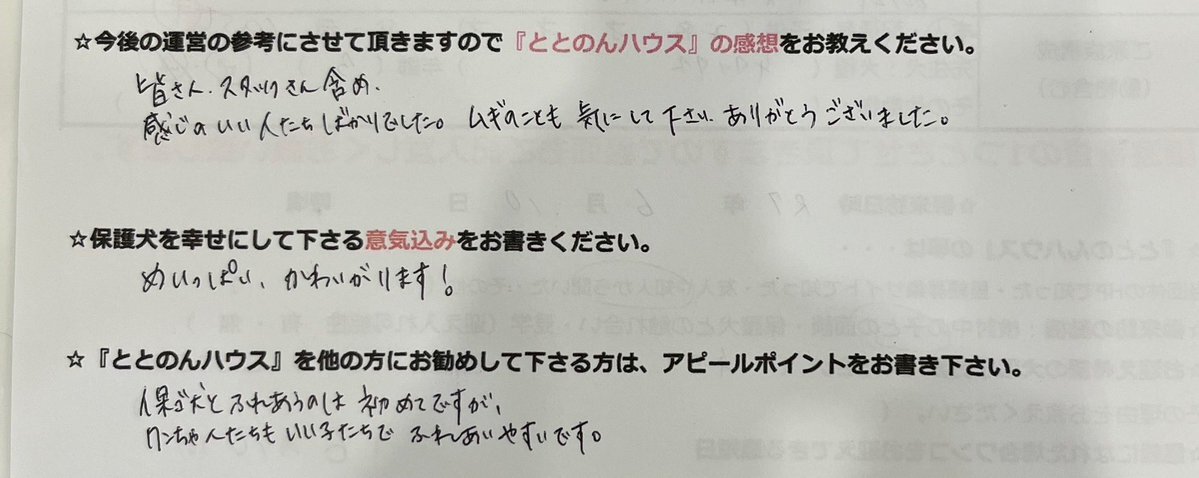 ☆今後の運営の参考にさせて頂きますので『ととのんハウス』の感想をお教えください。
皆さん、スタッフさん含め、
感じのいい人たちばかりでした。ムギのことも気にして下さいありがとうございました。
☆保護犬を幸せにして下さる意気込みをお書きください。
めいっぱい、かわいがります!
☆『ととのんハウス』を他の方にお勧めして下さる方は、アピールポイントをお書き下さい。
保ゴ犬とふれあうのは初めてですが、
ワンちゃんたちもいい子たちでふれあいやすいです。